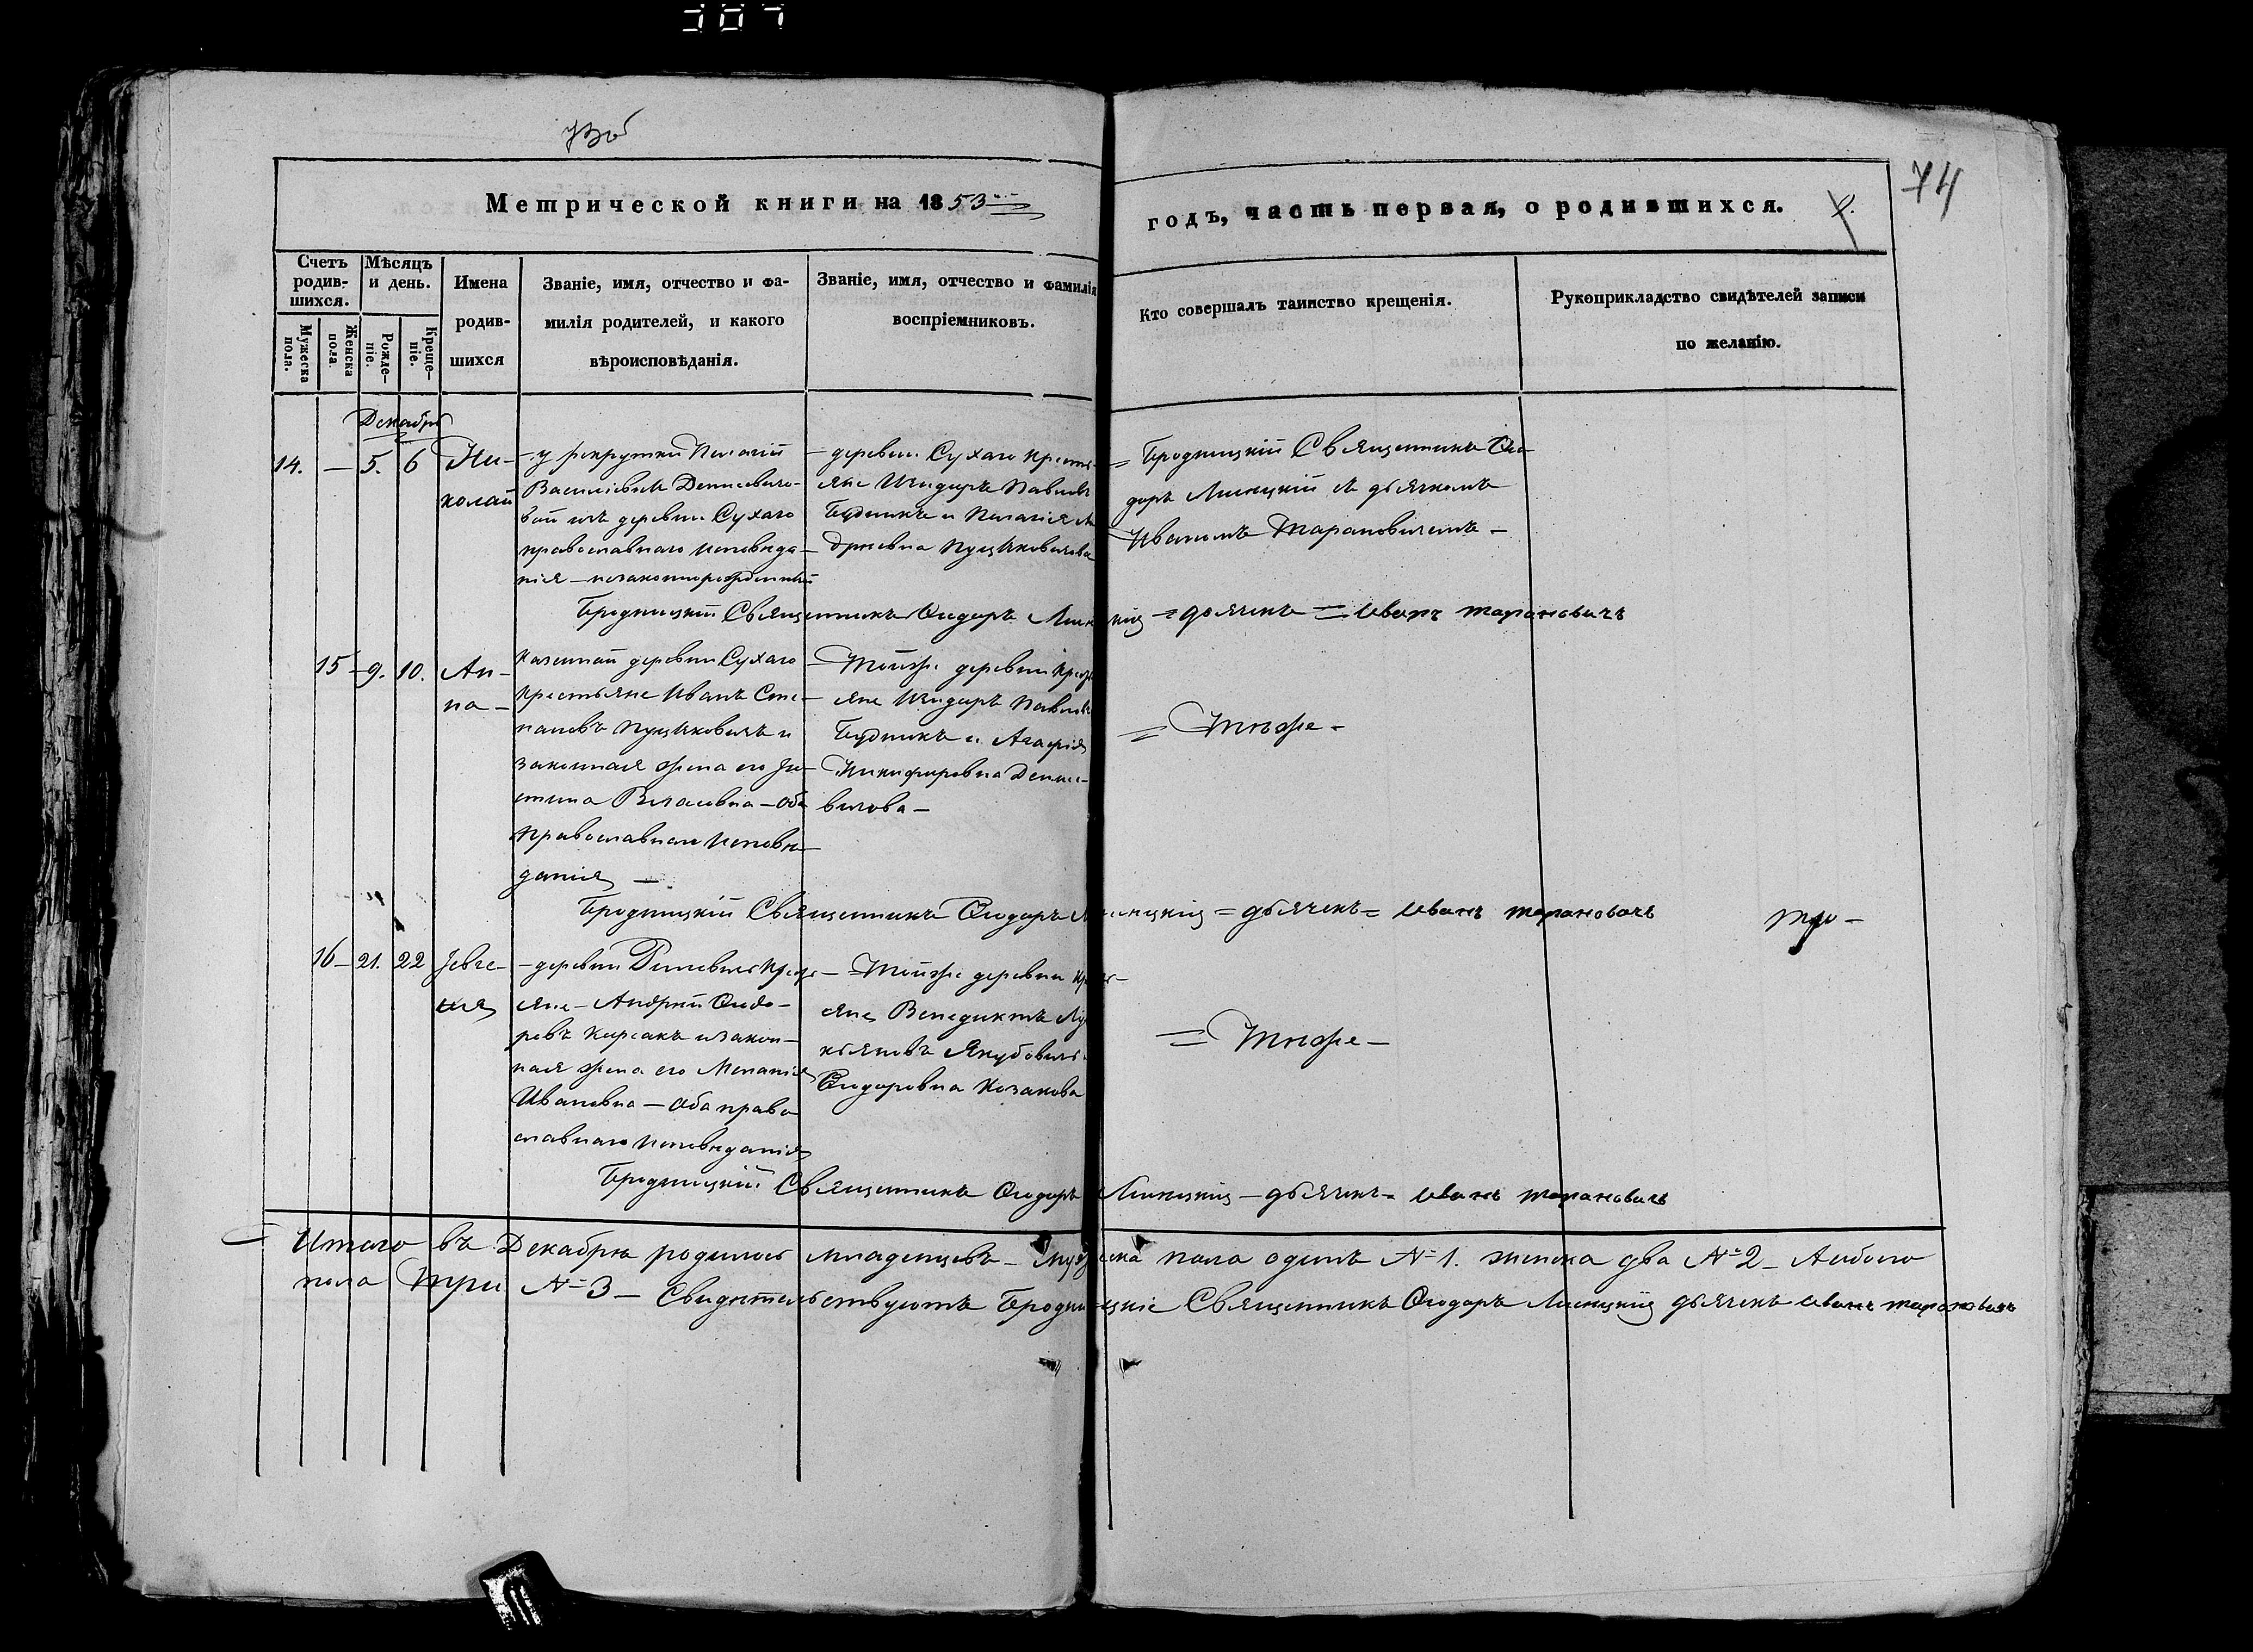 307
73об
74
Метрической книги на 1853
годъ, часть первая, о родившихся.
Счетъ родив-
шихся.
Мѣсяцъ
и день.
Мужеска
пола.
Женска
пола.
Рожде-
ніе.
Креще-
ніе.
Имена
родив-
шихся
Званіе, имя, отчество и фа-
милія родителей, и какого
вѣроисповѣданія.
Званіе, имя, отчество и фамилія
воспріемниковъ.
Кто совершалъ таинство крещенія.
Рукоприкладство свидѣтелей записи
по желанію.
Декабрь
14. — 5. 6 Ни-
колай
— у рекрутки Пелагіи
Василіевы Денисевичо-
вой изъ деревни Сухаго
православнаго исповѣда-
нія — незаконнорожденный
— деревни Сухаго крестья-
яне Исидоръ Павловъ
Будникъ и Пелагія
Пуцыковичова
= Бродницкій Священникъ Ѳео-
доръ Лисицкій съ дьячкомъ
Иваномъ Тарановичемъ —
Бродницкій Священникъ Ѳеодоръ Лисицкій = дьячекъ = Иванъ Тарановичъ
15 — 9. 10. Ан-
на —
казенной деревни Сухаго
крестьяне Иванъ Сте-
пановъ Пуцыковичъ и
законная жена его Iу-
стина Власовна — оба
православнаго исповѣ-
данія —
— Тойже деревни крест
яне Исидоръ Павловъ
Будникъ и Агафія
Никифоровна Денисе-
вичова —
= Тѣже —
Бродницкій Священникъ Ѳеодоръ Лисицкій = дьячекъ = Иванъ Тарановичъ
16 — 21. 22 Iевге-
нія
— деревни крест
яне — Андрей Ѳеодо-
ровъ Корсакъ и закон-
ная жена его Меланія
Ивановна — оба право
славнаго исповѣданія
— Тойже деревни крест-
яне Венедиктъ Лу
кьяновъ Якубовичъ
Ѳеодоровна Козакова
= Тѣже —
Бродницкій Священникъ Ѳеодоръ Лисицкій — дьячекъ = Иванъ Тарановичъ
Итого въ Декабрѣ родилось младенцевъ — мужеска пола одинъ №1. женска два №2 — Аобоего
пола три №3 — Свидѣтельствуютъ Бродницкіе Священникъ Ѳеодоръ Лисицкій дьячекъ Иванъ Тарановичъ